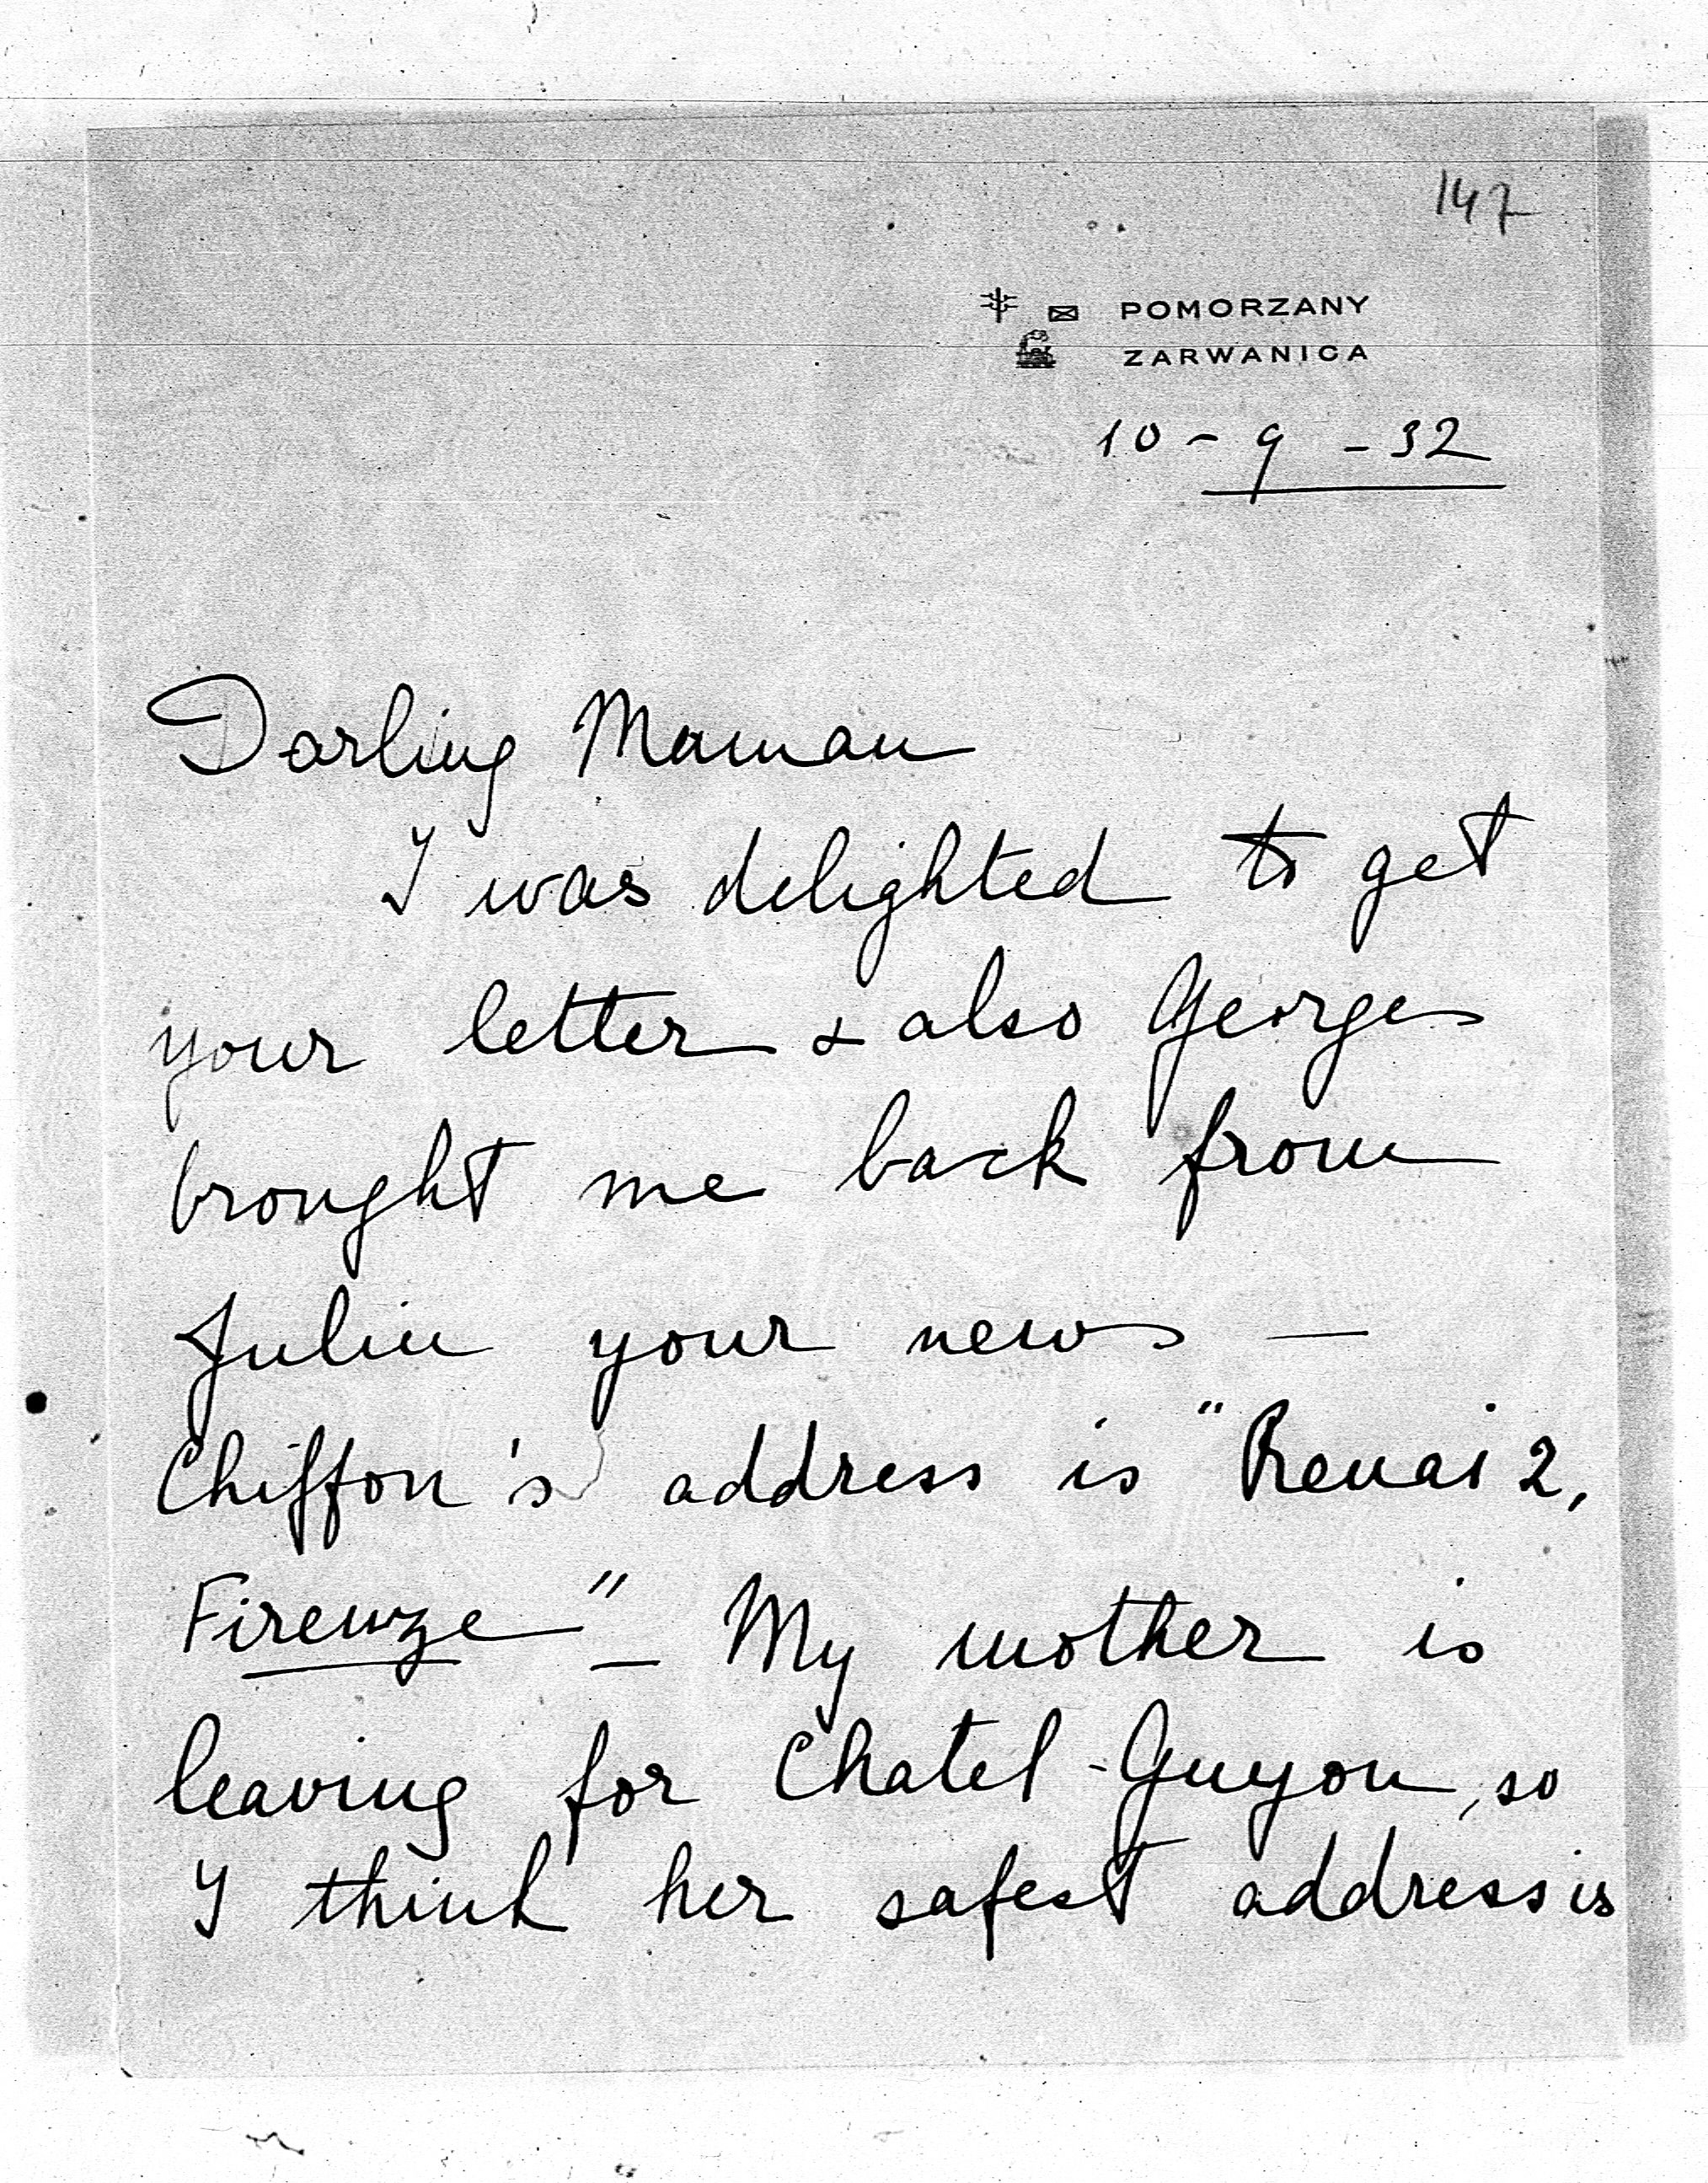 147
POMORZANY
ZARWANICA
10 - 9 - 32
Darling Maman
I was delighted to get
your letter & also Georges
brought me back from
Julin your news —
Chiffon's address is "Renai 2,
Firenze" — My mother is
leaving for Chatel-Guyon, so
I think her safest address is